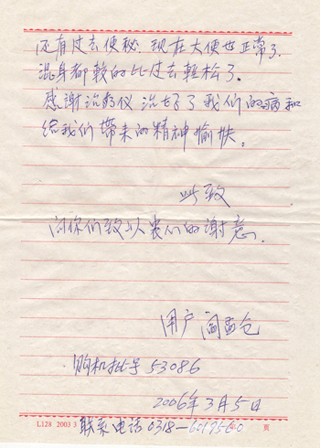 还有过去便秘，现在大便也正常了，
混身都较的比过去轻松了。
感谢治疗仪治好了我们的病和
给我们带来的精神愉快。
此致
向你们致以衷心的谢意。
用户 阎孟仓
购机批号 53086
2006年3月5日
L128 2003 3
联系电话 0318-6019560
页